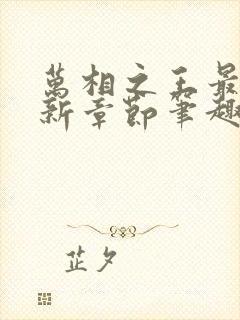 萬相之王最
新章節筆趣
芷夕